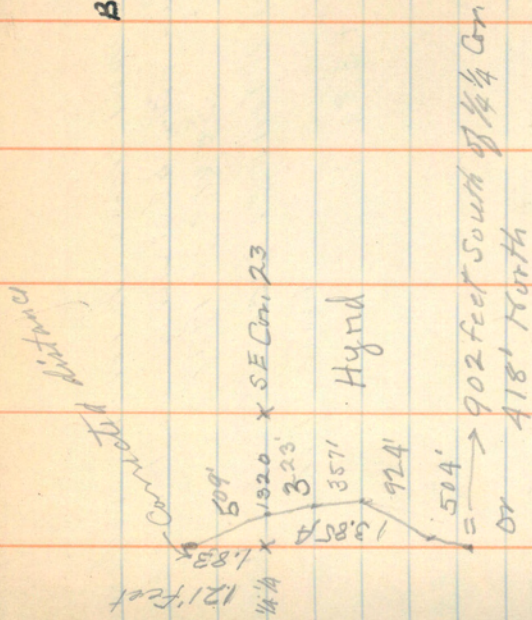 B
Corrected distance
121 Feet
1.83
509'
¼ ¼ X 1320 X SE Cor. 23
323'
13.85A
357' Hynd
924'
504'
= → 902 feet South of ¼ ¼ Cor
or 418' North